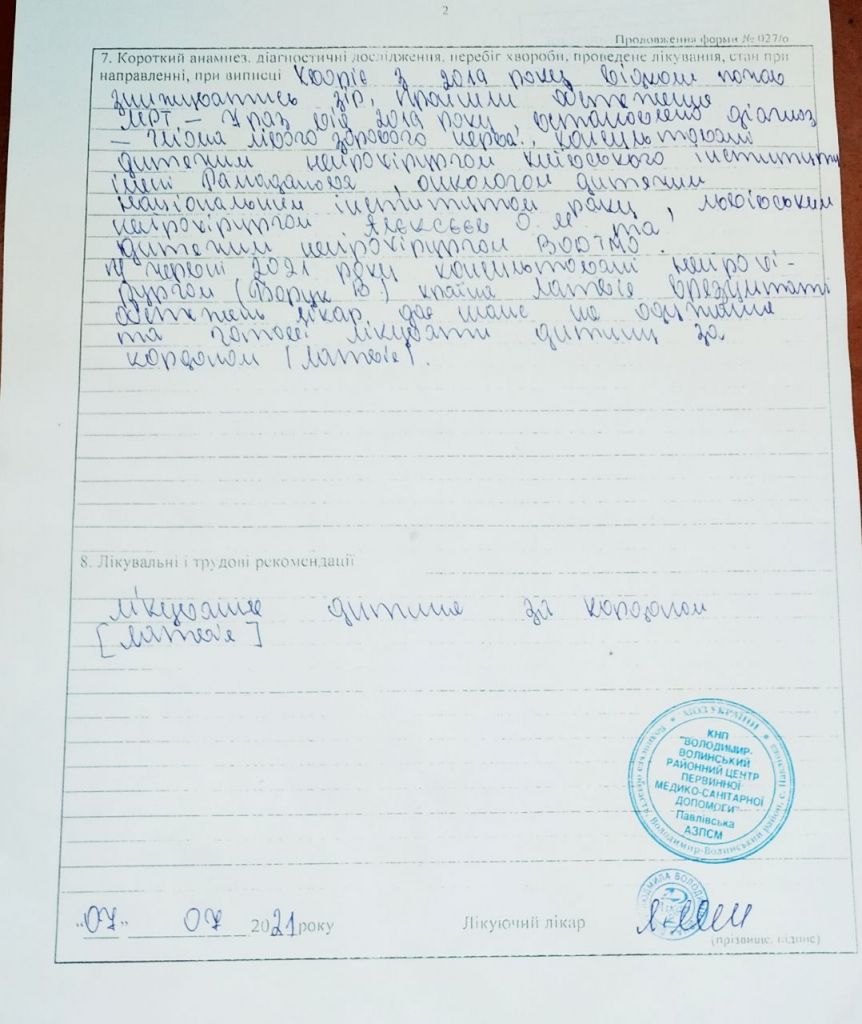 2
Продовження форми № 027/о
7. Короткий анамнез, діагностичні дослідження, перебіг хвороби, проведене лікування, стан при
направленні, при виписці Хворіє з 2019 року відколи почав
знижуватись зір, пройшли обстеження
МРТ – 4 раз від 2019 року, встановлено діагноз
– Гліома лівого зорового нерва., консультовані
дитячим нейрохірургом київського інституту
імені Рамаданова, онкологом дитячим
національним інститутом раку, львівським
нейрохірургом Алєксєєв О. М та
дитячим нейрохірургом ВООТМО.
червні 2021 року консультовані нейрохі-
рургом (Борук В.) країна Латвія врезультаті
обстежень лікар дає шанс на одужання
та готові лікувати дитину за
кордоном (Латвія).
8. Лікувальні і трудові рекомендації
Лікування дитини за кордоном
[Латвія]
МОЗ УКРАЇНИ
КНП
"ВОЛОДИМИР-
ВОЛИНСЬКИЙ
РАЙОННИЙ ЦЕНТР
ПЕРВИННОЇ
МЕДИКО-САНІТАРНОЇ
ДОПОМОГИ"
Павлівська
АЗПСМ
"07" 07 2021 року Лікуючий лікар
(прізвище, підпис)